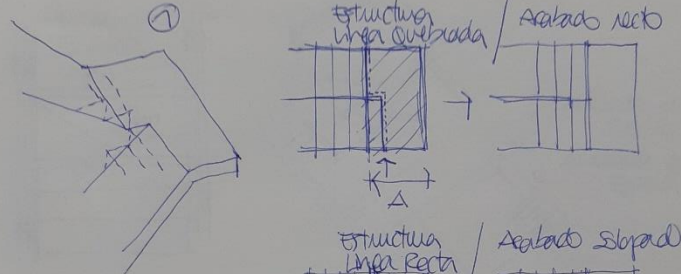 1
Estructura
Línea Quebrada / Acabado recto
A
Estructura
Línea Recta / Acabado Solapado